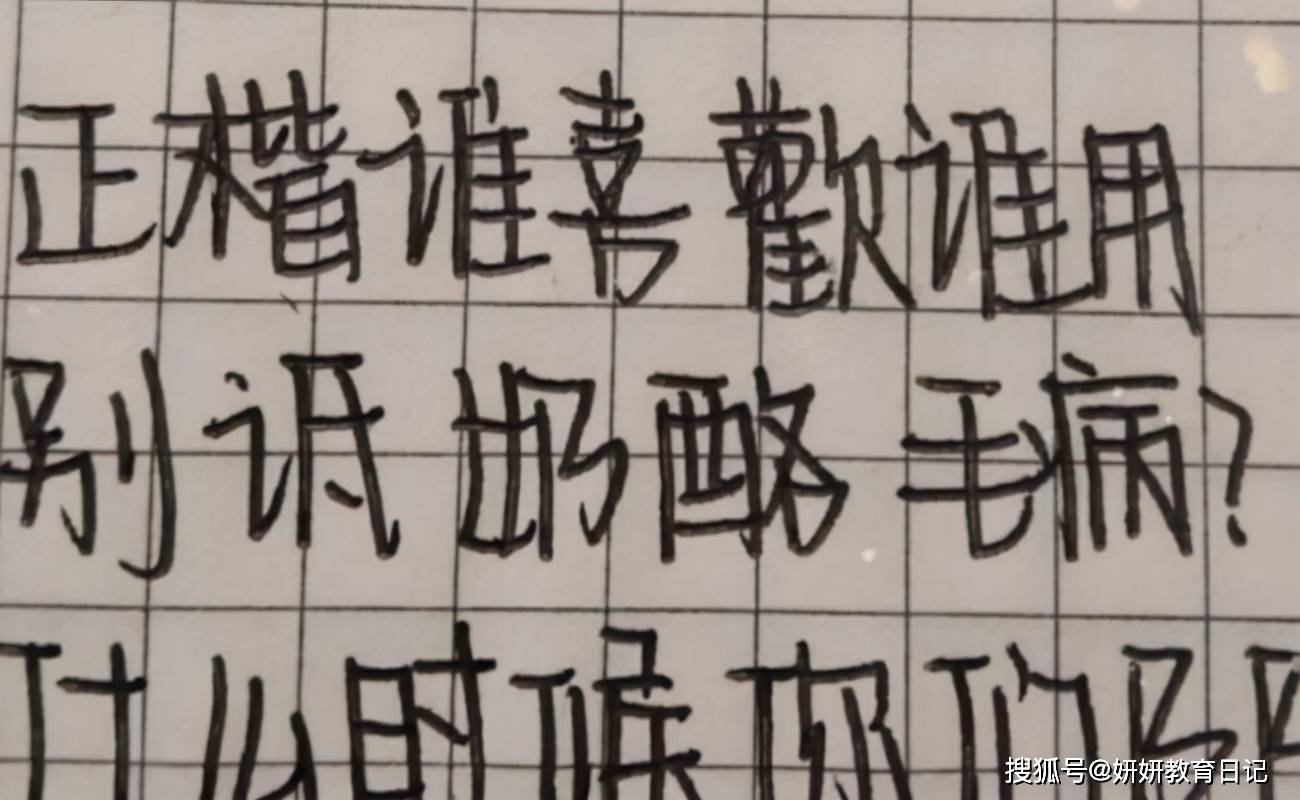 正楷谁喜歡谁用
别诋奶酪毛病?
什么时候你们奶酪
搜狐号@妍妍教育日记